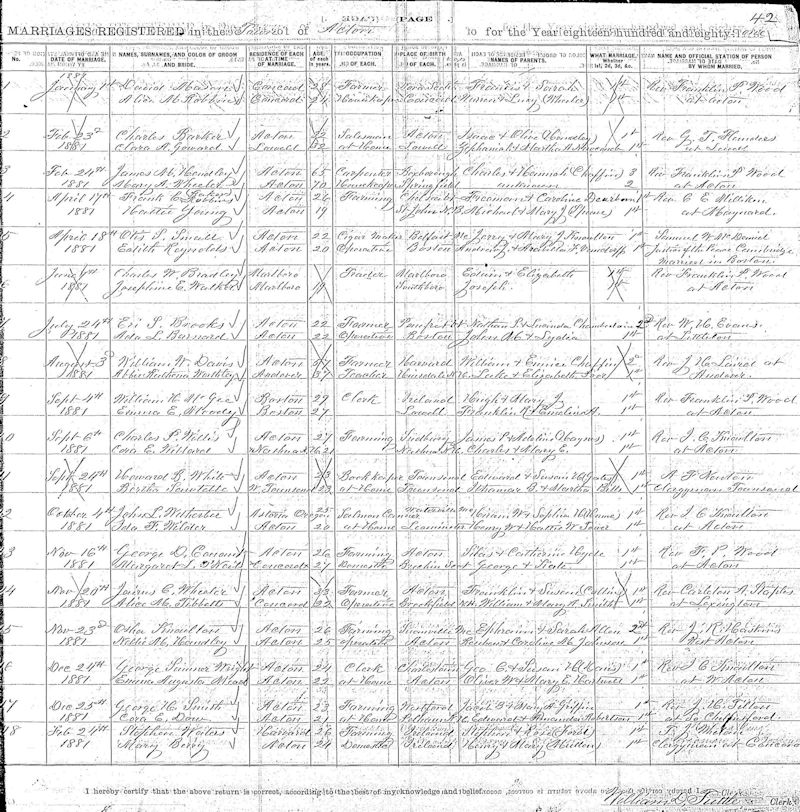 42
PAGE
MARRIAGES REGISTERED in the of Acton for the Year eighteen hundred and eighty
No. DATE OF MARRIAGE. NAMES, SURNAMES, AND COLOR OF GROOM AND BRIDE. RESIDENCE OF EACH AT TIME OF MARRIAGE. AGE of each in years. OCCUPATION OF EACH. PLACE OF BIRTH OF EACH. NAMES OF PARENTS. WHAT MARRIAGE. Whether 1st, 2d, 3d, &c. NAME AND OFFICIAL STATION OF PERSON BY WHOM MARRIED.
1881
1 1st Concord 28 Farmer Francis & Sarah 1st Rev Franklin P Wood
Alice M. Robbins Concord 24 Housekeeper Concord Warren & Lucy (Wheeler) 1st at Acton
2 Feb 23d Charles Barker Acton 22 Salesman Acton Isaac & Olive (Handley) 1st Rev G. T. Flanders
1881 Clara A. Lowell at Home Lowell & Martha A 1st at Lowell
3 Feb 24th James M. Handley Acton 65 Carpenter Boxborough Charles & Hannah (Chaffin) 3 Rev Franklin P Wood
1881 Mary A. Wheeler Acton 70 Housekeeper Springfield unknown 2 at Acton
4 April 17th Frank C. Acton 26 Farming Chelmsford Freeman & Caroline 1st Rev C. E. Milliken
1881 Young Acton 19 St John N.B Michael & Mary J 1st at Maynard.
5 April 18th Otis S. Acton 22 Cigar Maker Belfast Me Jerry & Mary J Knowlton 1st Samuel W. Mc Daniel
1881 Edith Reynolds Acton 20 Operative Boston 1st Justice of the Peace Cambridge
married in Boston
6 June 1st Charles W. Bradley Marlboro Teacher Marlboro Edwin & Elizabeth 1st Rev Franklin P Wood
Josephine E. Walker Marlboro 19 Southboro Joseph 1st at Acton
7 July 24th Eri S. Brooks Acton 22 Farmer Nathan S. & Lucinda Chamberlain 2d Rev W. H. Evans.
1881 Ada L. Barnard Acton 22 Operative Boston John M. & Lydia 1st at Littleton
8 August 3d William W. Davis Acton 37 Farmer Harvard William & Eunice Chaffin 2 Rev J. H. Laird at
1881 Andover 37 Teacher & Elizabeth 1st Andover.
9 Sept 4th William H. Mc Gee Boston 29 Clerk Ireland Hugh & Mary J. Rev Franklin P. Wood
1881 Emma E. Boston 27 Lowell Franklin & A. at Acton
10 Sept 6th Charles P. Willis Acton 27 Farming Sudbury James P & Adeline (Haynes) 1st Rev J. C. Knowlton
1881 Cora E. Willard Nashua N.H. 21 Nashua N.H. Charles & Mary E. 1st at Acton
11 Sept 24th Howard B. White Acton 23 Book keeper Townsend Edward & Susan H (Gates) 1st A. F. Newton
1881 Bertha W. Townsend 23 at Home Townsend & Martha 1st Clergyman Townsend
12 October 4th John L. Wetherbee Astoria Oregon 25 Salmon Canner Waterville Me Hiram W. & Sophia C (Hume) 1st Rev J. C Knowlton
1881 Ida F. Wilder Acton 20 at Home Leominster Henry W & Hattie W 1st at Acton
13 Nov 16th George D. Conant Acton 26 Farming Acton Silas & Catherine Hyde 1st Rev F. P. Wood
1881 Margaret Concord 27 Domestic George & Kate 1st at Acton
14 Nov 20th James E. Wheeler Acton 23 Farmer Acton Franklin & Susan Collins 1st Rev Carleton A. Staples
1881 Alice M. Tibbetts Concord 22 Operative Brookfield N.H. William & Mary A. Smith 1st at Lexington
15 Nov 23d Knowlton Acton 26 Farming Me Ephraim & Sarah Allen 2nd Rev J. R. Haskins
1881 Nellie M. Handley Acton 25 Operative Acton Reuben & Caroline M. Johnson 1st West Acton
16 Dec 24th George Sumner Wright Acton 24 Clerk Charlestown Geo. C. & Susan H (Davis) 1st Rev J C Knowlton
1881 Emma Augusta Mead Acton 22 at Home Acton Oliver W & Mary E Hartwell 1st at W Acton
17 Dec 25th George H. Smith Acton 23 Farming Westford & Mary A. Griffin 1st Rev J. H. Tilton
1881 Cora E. Dow Acton 21 at Home Pelham N.H. Edward & Amanda Robertson 1st at So Chelmsford
18 Feb 24th Stephen Waters Harvard 26 Farming Ireland Stephen & Rose (Ford) 1st
1881 Mary Berry Acton 24 Domestic Ireland Henry & Mary 1st Clergyman at Concord
I hereby certify that the above return is correct, according to the best of my knowledge and belief.
William D Tuttle Clerk